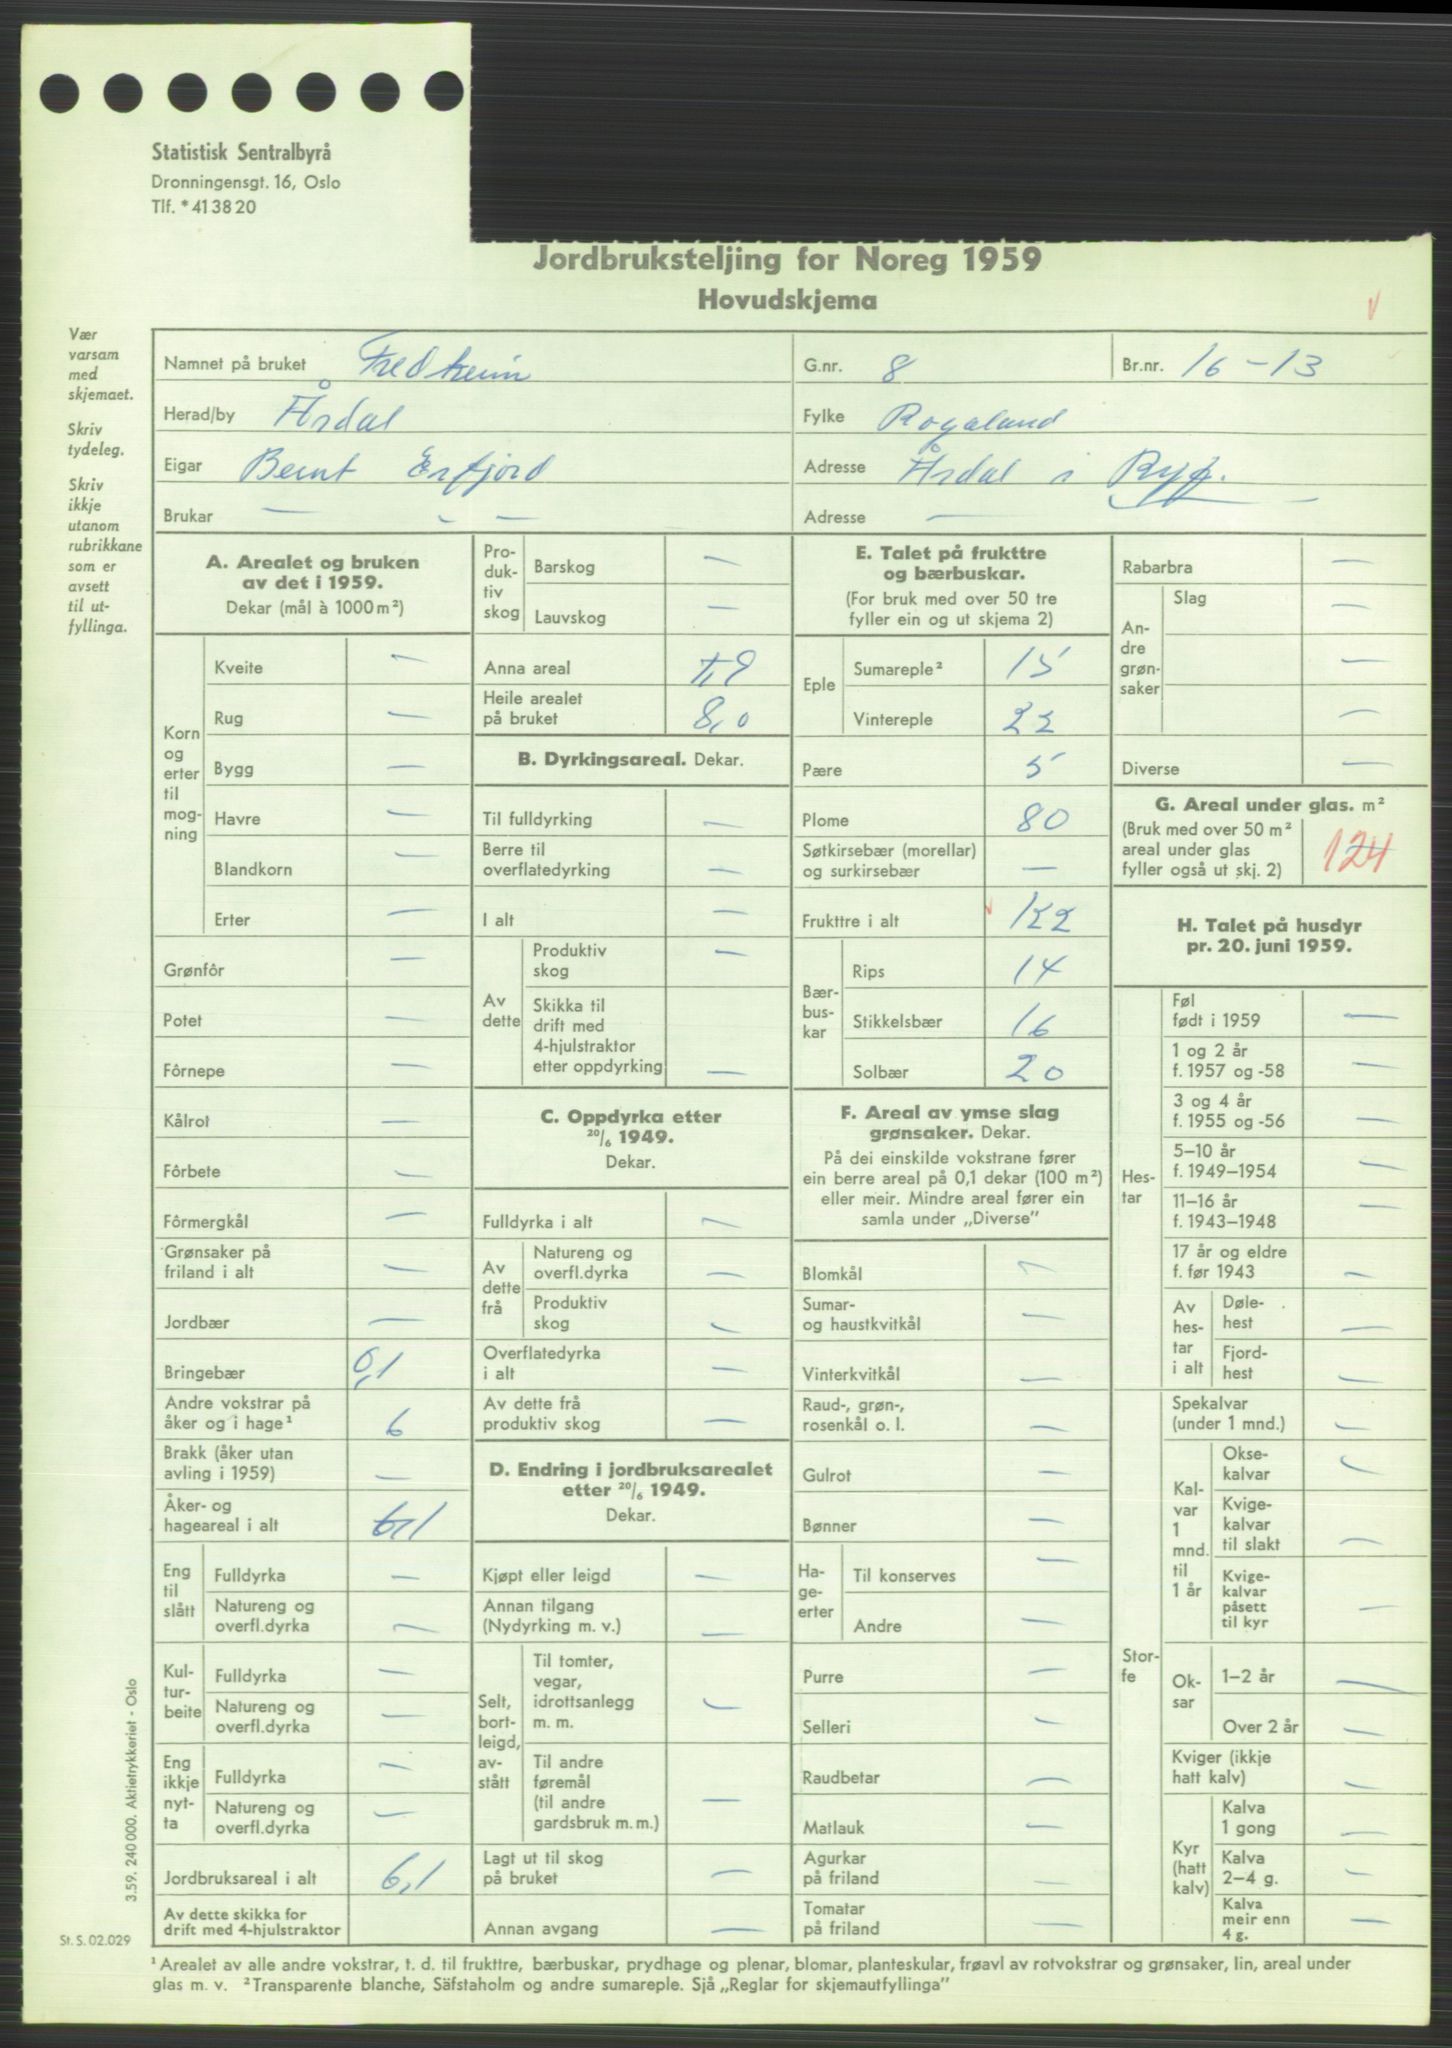 Statistisk Sentralbyrå
Dronningensgt. 16, Oslo
Tlf. *41 38 20
Jordbruksteljing for Noreg 1959
Hovudskjema
Vær
varsam
med
skjemaet.
Skriv
tydeleg.
Skriv
ikkje
utanom
rubrikkane
som er
avsett
til ut-
fyllinga.
Namnet på bruket Fredheim
G.nr. 8
Br.nr. 16 – 13
Herad/by Årdal
Fylke Rogaland
Eigar Bernt Erfjord
Adresse Årdal i Ryf.
Brukar — – —
Adresse —
A. Arealet og bruken
av det i 1959.
Dekar (mål à 1000 m²)
Korn
og
erter
til
mog-
ning
Kveite —
Rug —
Bygg —
Havre —
Blandkorn —
Erter —
Grønfôr —
Potet —
Fôrnepe —
Kålrot —
Fôrbete —
Fôrmergkål —
Grønsaker på
friland i alt —
Jordbær —
Bringebær 0,1
Andre vokstrar på
åker og i hage¹ 6
Brakk (åker utan
avling i 1959) —
Åker- og
hageareal i alt 6,1
Eng
til
slått
Fulldyrka —
Natureng og
overfl.dyrka —
Kul-
tur-
beite
Fulldyrka —
Natureng og
overfl.dyrka —
Eng
ikkje
nyt-
ta
Fulldyrka —
Natureng og
overfl.dyrka —
Jordbruksareal i alt 6,1
Av dette skikka for
drift med 4-hjulstraktor
Pro-
duk-
tiv
skog
Barskog —
Lauvskog —
Anna areal 1,9
Heile arealet
på bruket 8,0
B. Dyrkingsareal. Dekar.
Til fulldyrking —
Berre til
overflatedyrking —
I alt —
Av
dette
Produktiv
skog —
Skikka til
drift med
4-hjulstraktor
etter oppdyrking —
C. Oppdyrka etter
20/6 1949.
Dekar.
Fulldyrka i alt —
Av
dette
frå
Natureng og
overfl.dyrka —
Produktiv
skog —
Overflatedyrka
i alt —
Av dette frå
produktiv skog —
D. Endring i jordbruksarealet
etter 20/6 1949.
Dekar.
Kjøpt eller leigd —
Annan tilgang
(Nydyrking m. v.) —
Selt,
bort-
leigd,
av-
stått
Til tomter,
vegar,
idrottsanlegg
m. m. —
Til andre
føremål
(til andre
gardsbruk m. m.) —
Lagt ut til skog
på bruket —
Annan avgang —
E. Talet på frukttre
og bærbuskar.
(For bruk med over 50 tre
fyller ein og ut skjema 2)
Eple
Sumareple² 15
Vintereple 22
Pære 5
Plome 80
Søtkirsebær (morellar)
og surkirsebær —
Frukttre i alt 122
Bær-
bus-
kar
Rips 14
Stikkelsbær 16
Solbær 20
F. Areal av ymse slag
grønsaker. Dekar.
På dei einskilde vokstrane fører
ein berre areal på 0,1 dekar (100 m²)
eller meir. Mindre areal fører ein
samla under „Diverse”
Blomkål —
Sumar-
og haustkvitkål —
Vinterkvitkål —
Raud-, grøn-,
rosenkål o. l. —
Gulrot —
Bønner —
Ha-
ge-
erter
Til konserves —
Andre —
Purre —
Selleri —
Raudbetar —
Matlauk —
Agurkar
på friland —
Tomatar
på friland —
Rabarbra —
An-
dre
grøn-
saker
Slag —
—
—
Diverse —
G. Areal under glas. m²
(Bruk med over 50 m²
areal under glas
fyller også ut skj. 2) 124
H. Talet på husdyr
pr. 20. juni 1959.
Hes-
tar
Føl
født i 1959 —
1 og 2 år
f. 1957 og -58 —
3 og 4 år
f. 1955 og -56 —
5–10 år
f. 1949–1954 —
11–16 år
f. 1943–1948 —
17 år og eldre
f. før 1943 —
Av
hes-
tar
i alt
Døle-
hest —
Fjord-
hest —
Stor-
fe
Spekalvar
(under 1 mnd.) —
Kal-
var
1
mnd.
til
1 år
Okse-
kalvar —
Kvige-
kalvar
til slakt —
Kvige-
kalvar
påsett
til kyr —
Ok-
sar
1–2 år —
Over 2 år —
Kviger (ikkje
hatt kalv) —
Kyr
(hatt
kalv)
Kalva
1 gong —
Kalva
2–4 g. —
Kalva
meir enn
4 g. —
3.59. 240 000. Aktietrykkeriet - Oslo
St. S. 02.029
¹ Arealet av alle andre vokstrar, t. d. til frukttre, bærbuskar, prydhage og plenar, blomar, planteskular, frøavl av rotvokstrar og grønsaker, lin, areal under
glas m. v. ² Transparente blanche, Säfstaholm og andre sumareple. Sjå „Reglar for skjemautfyllinga”